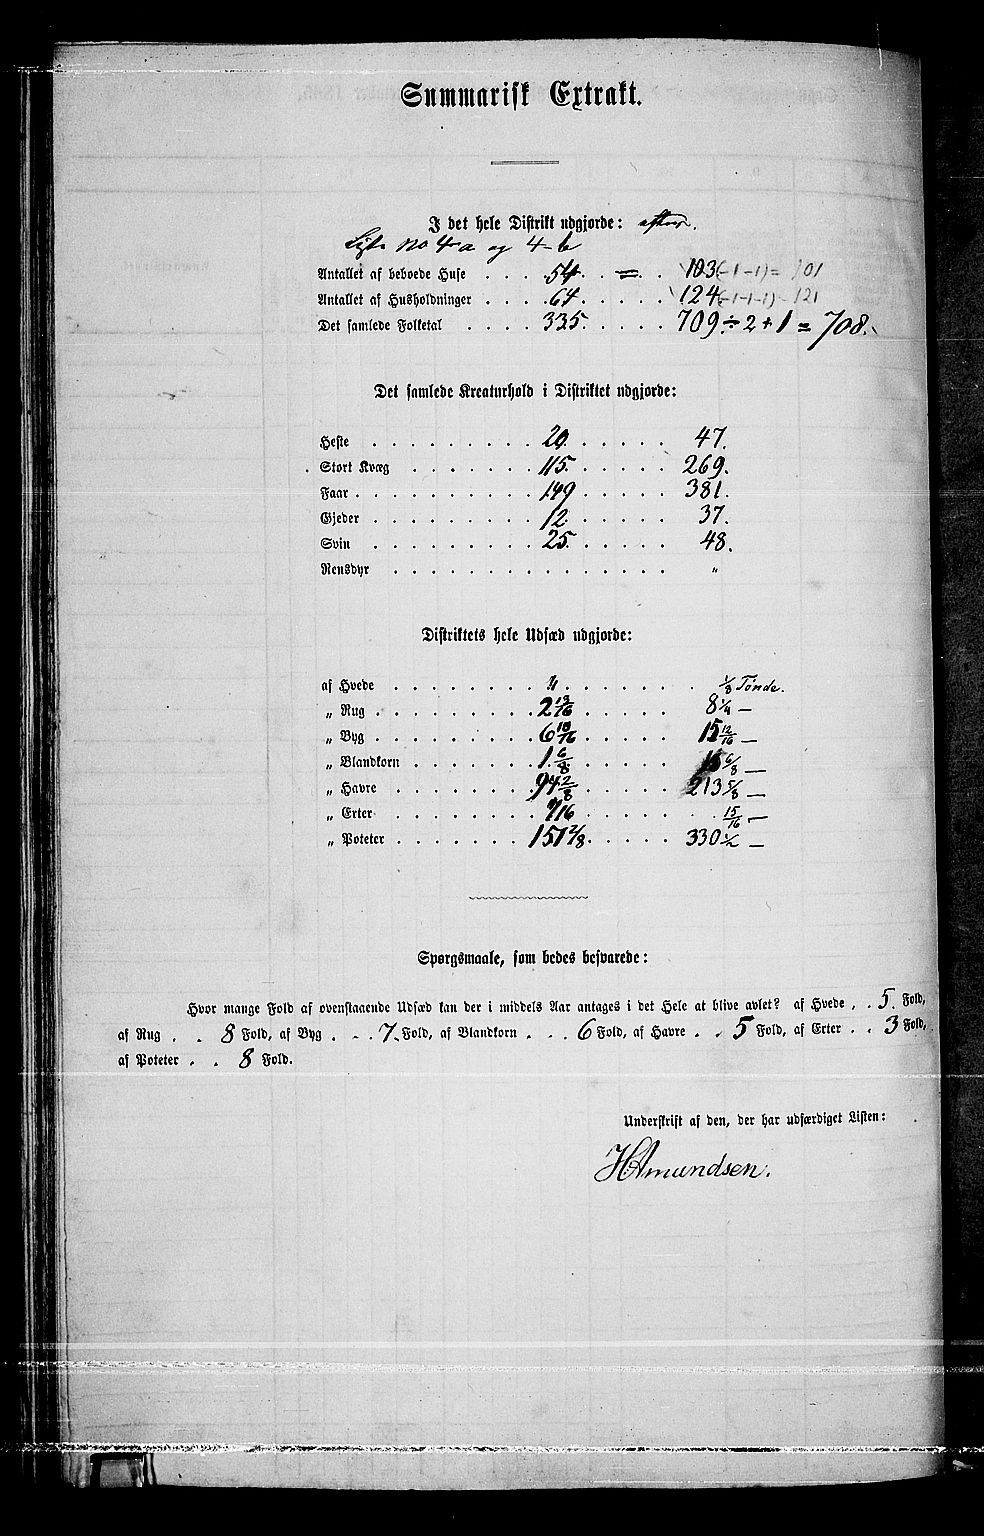 Summarisk Extrakt.
I det hele Distrikt udgjorde: efter
Liste No 4 a og 4 b
Antallet af beboede Huse . . . . 54 . . = . . 103 (-1-1) = 101
Antallet af Husholdninger . . . . 64 . . . . . 124 (-1-1-1) - 121
Det samlede Folketal . . . . 335 . . . . . 709 ÷ 2 + 1 = 708.
Det samlede Kreaturhold i Distriktet udgjorde:
Heste . . . . . . . 20 . . . . . 47.
Stort Kvæg . . . . . 115 . . . . . 269.
Faar . . . . . . . 149 . . . . . 381.
Gjeder . . . . . . . 12 . . . . . 37.
Svin . . . . . . . 25 . . . . . 48.
Rensdyr . . . . . . . . . . . . . "
Distriktets hele Udsæd udgjorde:
af Hvede . . . . . . . " . . . . . . 1/8 Tønde.
„ Rug . . . . . . . 2 13/16 . . . . . 8 1/4 —
„ Byg . . . . . . . 6 10/16 . . . . . 15 12/16 —
„ Blandkorn . . . . . 1 6/8 . . . . . 6/8 —
„ Havre . . . . . . 94 2/8 . . . . . 213 5/8 —
„ Erter . . . . . . . . . . . . 15/16 —
„ Poteter . . . . . . 151 2/8 . . . . . 330 1/2 —
Spørgsmaale, som bedes besvarede:
Hvor mange Fold af ovenstaaende Udsæd kan der i middels Aar antages i det Hele at blive avlet? af Hvede . . 5. Fold,
af Rug . . 8 Fold, af Byg . . . 7. Fold, af Blandkorn . . . 6 Fold, af Havre . . 5 Fold, af Erter . . 3 Fold,
af Poteter . . 8 Fold.
Underskrift af den, der har udfærdiget Listen:
H Amundsen.